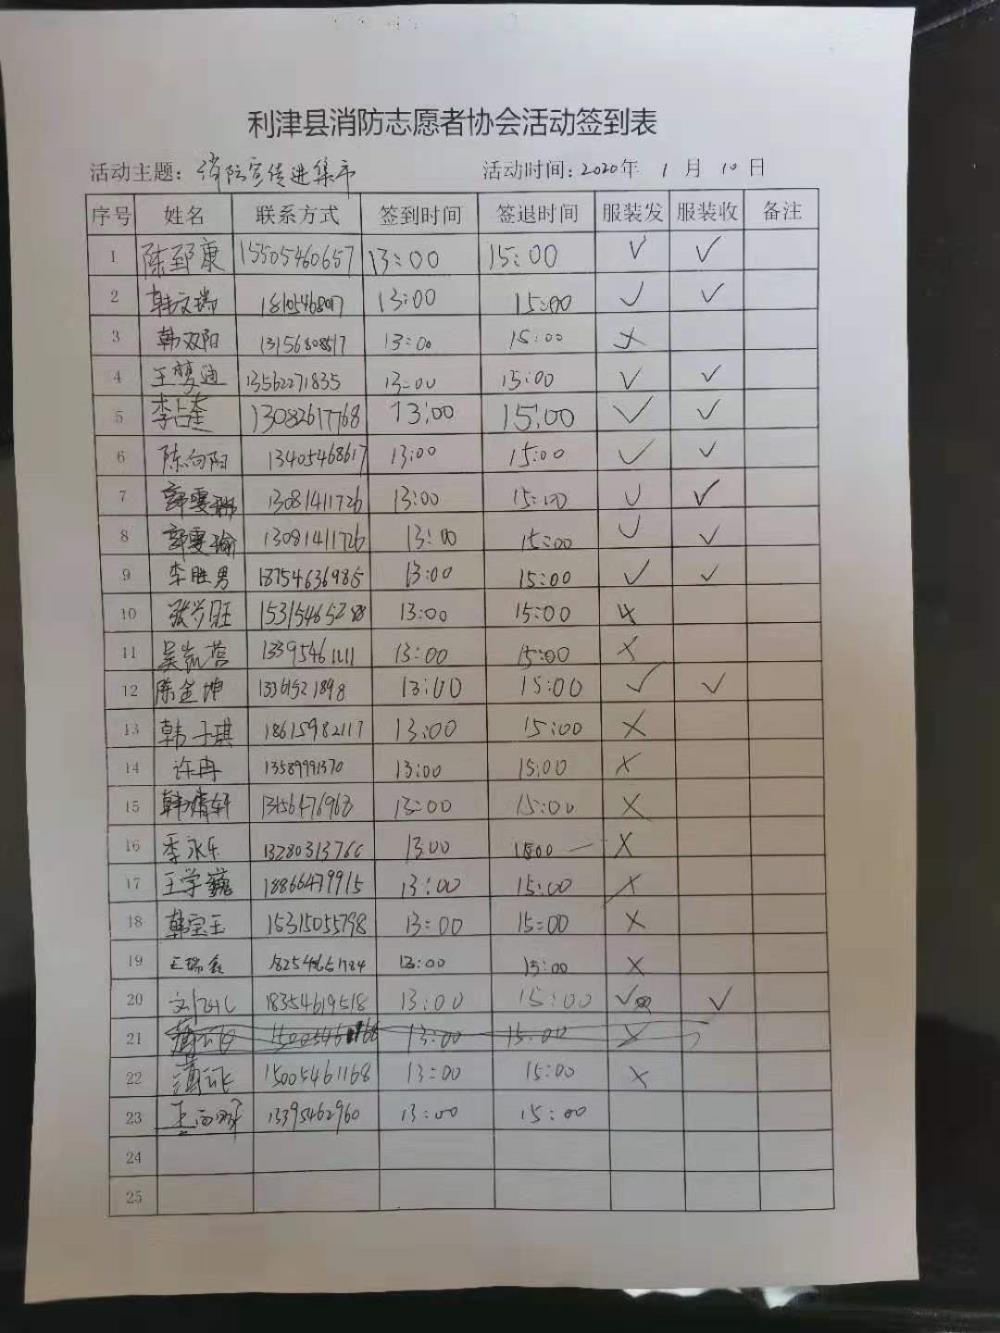 利津县消防志愿者协会活动签到表
活动主题：消防宣传进集市 活动时间：2020年 1 月 10 日
序号 姓名 联系方式 签到时间 签退时间 服装发 服装收 备注
1 陈郅康 15505460657 13:00 15:00 ✓ ✓
2 韩文瑞 13:00 15:00 ✓ ✓
3 韩双阳 13156808517 13:00 15:00 ×
4 王梦迪 13562271835 13:00 15:00 ✓ ✓
5 李占奎 13082617768 13:00 15:00 ✓ ✓
6 陈向阳 13405468617 13:00 15:00 ✓ ✓
7 郭雯琳 13081411726 13:00 15:00 ✓ ✓
8 郭雯瑜 13081411726 13:00 15:00 ✓ ✓
9 李胜男 18754636985 13:00 15:00 ✓ ✓
10 张兴旺 15315465288 13:00 15:00 ×
11 吴凯蓓 13395461111 13:00 15:00 ×
12 陈金坤 13361521898 13:00 15:00 ✓ ✓
13 韩子琪 18615982117 13:00 15:00 ×
14 许冉 13589991370 13:00 15:00 ×
15 韩婧轩 13156476963 13:00 15:00 ×
16 季永乐 13280313766 13:00 ×
17 王学巍 18866479915 13:00 15:00 ×
18 韩宝玉 15315055798 13:00 15:00 ×
19 王瑞鑫 18254651784 13:00 15:00 ×
20 18354619518 13:00 15:00 ✓ ✓
21 13:00 15:00 ×
22 15005461168 13:00 15:00 ×
23 13395462960 13:00 15:00
24
25